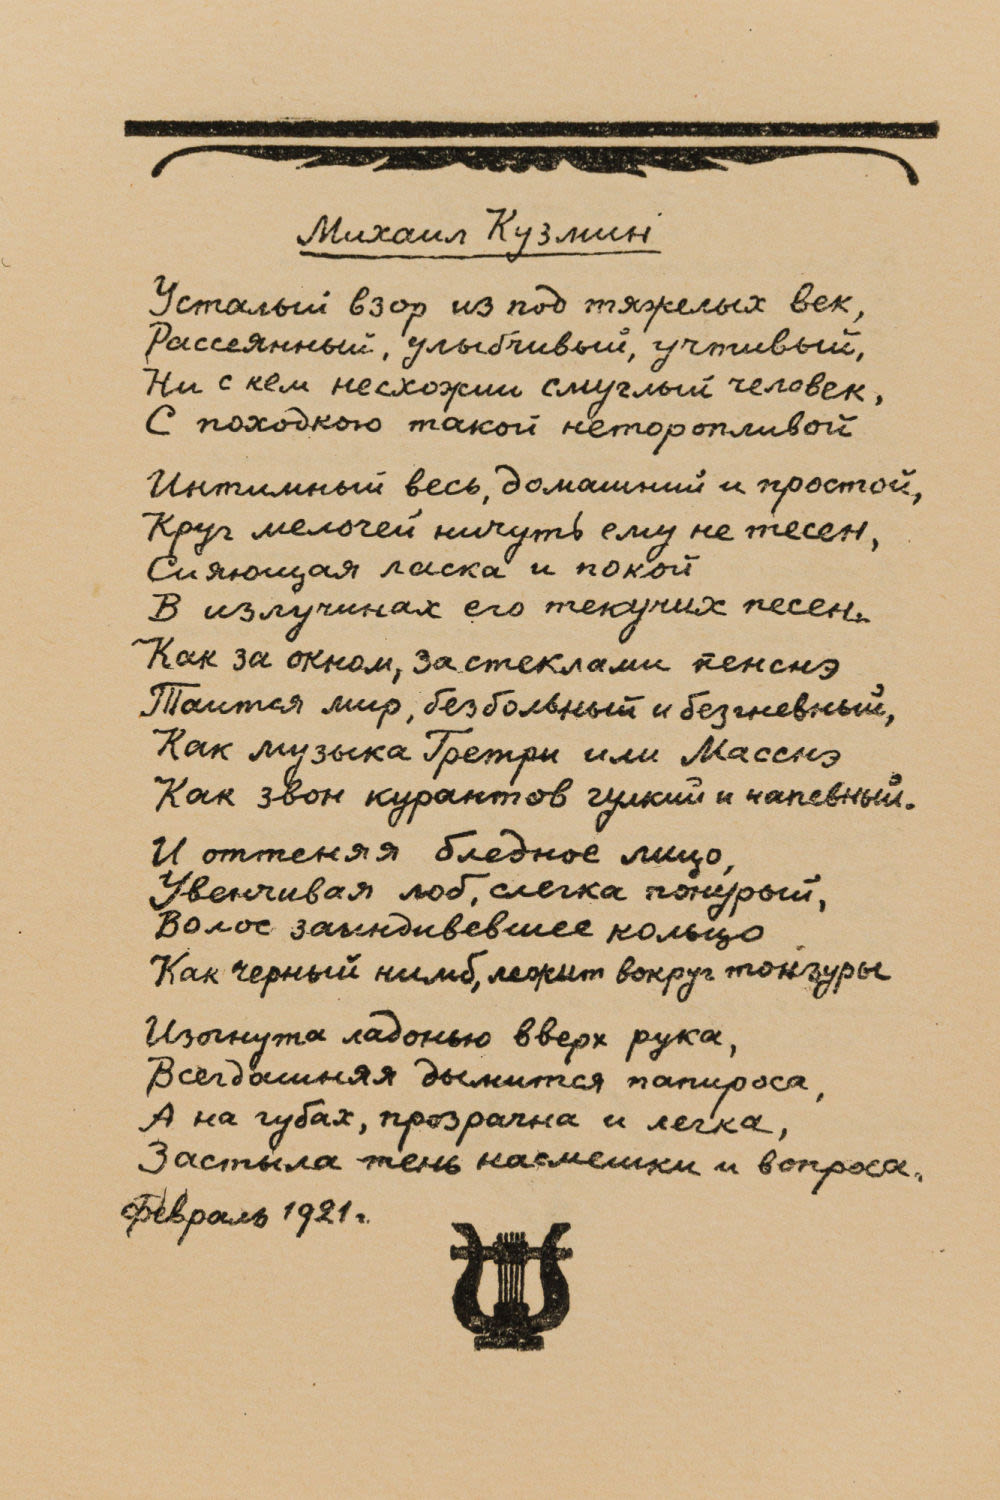 Михаил Кузмин
Усталый взор из под тяжелых век,
Рассеянный, улыбчивый, учтивый,
Ни с кем несхожий смуглый человек,
С походкою такой неторопливой
Интимный весь, домашний и простой,
Круг мелочей ничуть ему не тесен,
Сияющая ласка и покой
В излучинах его текучих песен.
Как за окном, за стеклами пенснэ
Таится мир, безбольный и безгневный,
Как музыка Гретри или Масснэ
Как звон курантов гулкий и напевный.
И оттеняя бледное лицо,
Увенчивая лоб, слегка понурый,
Волос заындивевшее кольцо
Как черный нимб, лежит вокруг тонзуры
Изогнута ладонью вверх рука,
Всегдашняя дымится папироса,
А на губах, прозрачна и легка,
Застыла тень насмешки и вопроса.
Февраль 1921 г.